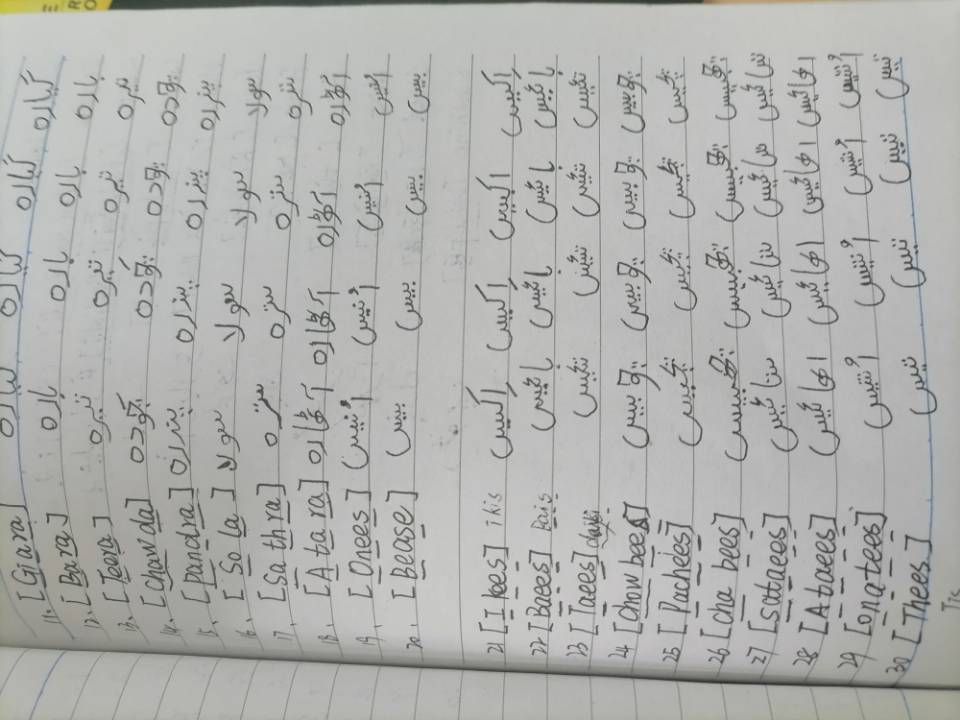 11. [Giara] گیارہ گیارہ گیارہ گیارہ
12. [Bara] بارہ بارہ بارہ بارہ
13. [Teera] تیرہ تیرہ تیرہ تیرہ
14. [chawida] چودہ چودہ چودہ چودہ
15. [Pandra] پندرہ پندرہ پندرہ پندرہ
16. [Sola] سولا سولا سولا سولا
17. [Sathra] سترہ سترہ سترہ سترہ
18. [Atara] اٹھارہ اٹھارہ اٹھارہ اٹھارہ
19. [Onees] اُنیس اُنیس اُنیس اُنیس
20. [Bease] بیس بیس بیس بیس
21 [Ikees] ikis اکیس اکیس اکیس اکیس
22 [Baees] Bais بائیس بائیس بائیس بائیس
23 [Taees] تئیس تئیس تئیس تئیس
24 [Chowbees] چوبیس چوبیس چوبیس چوبیس
25 [Pachees] پچیس پچیس پچیس پچیس
26 [cha bees] چھبیس چھبیس چھبیس چھبیس
27 [Sttaees] ستائیس ستائیس ستائیس ستائیس
28 [Ataees] اٹھائیس اٹھائیس اٹھائیس اٹھائیس
29 [onatees] اُنتیس اُنتیس اُنتیس اُنتیس
30 [Thees] تیس تیس تیس تیس
Tis